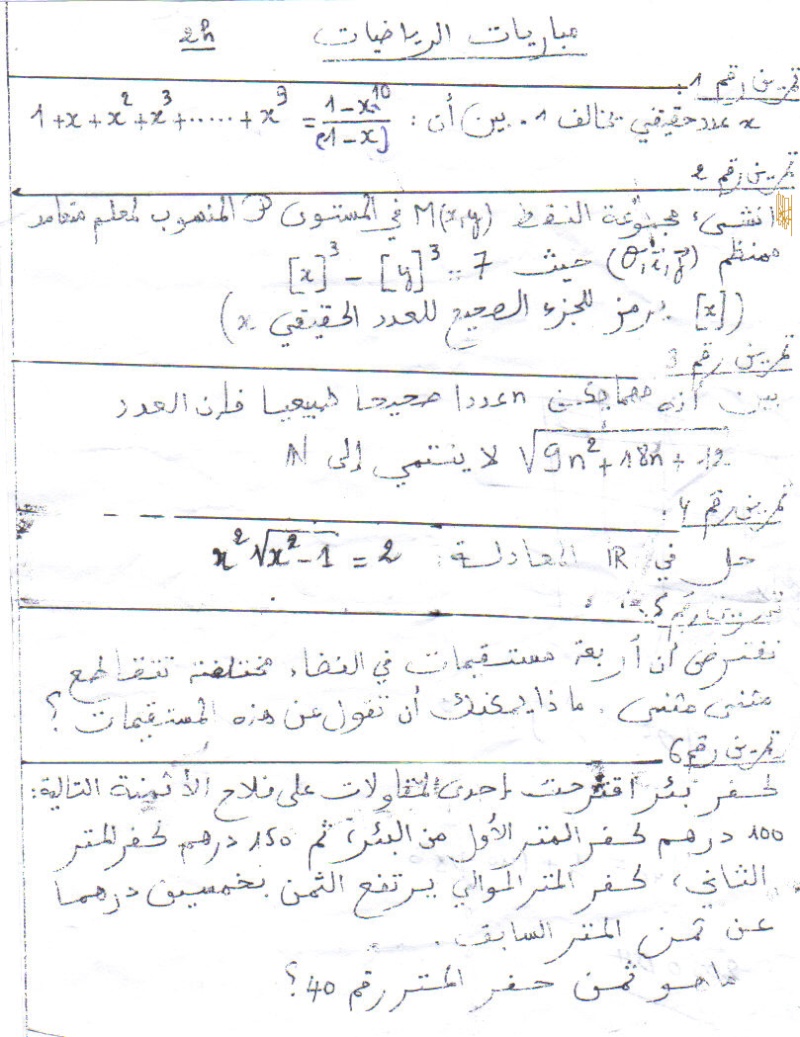 مباريات الرياضيات 2h
تمرين رقم 1.
x عدد حقيقي يخالف 1. بين أن: 1+x+x²+x³+.....+x⁹ = (1-x¹⁰)/(1-x)
تمرين رقم 2
انشئ مجموعة النقط M(x,y) في المستوى P المنسوب لمعلم متعامد
ممنظم (O,i,j) حيث [x]³ - [y]³ = 7
([x] يرمز للجزء الصحيح للعدد الحقيقي x)
تمرين رقم 3
بين أنه مهما يكن n عددا صحيحا طبيعيا فإن العدد
√(9n²+18n+12) لا ينتمي إلى ℕ
تمرين رقم 4.
حل في ℝ المعادلة: x²√(x²-1) = 2
تمرين رقم 5
نفترض أن أربعة مستقيمات في الفضاء مختلفة تتقاطع
مثنى مثنى. ماذا يمكنك أن تقول عن هذه المستقيمات؟
تمرين رقم 6
لحفر بئر اقترحت إحدى المقاولات على فلاح الأثمنة التالية:
100 درهم لحفر المتر الأول من البئر، ثم 150 درهم لحفر المتر
الثاني، لحفر المتر الموالي يرتفع الثمن بخمسين درهما
عن ثمن المتر السابق.
ما هو ثمن حفر المتر رقم 40؟